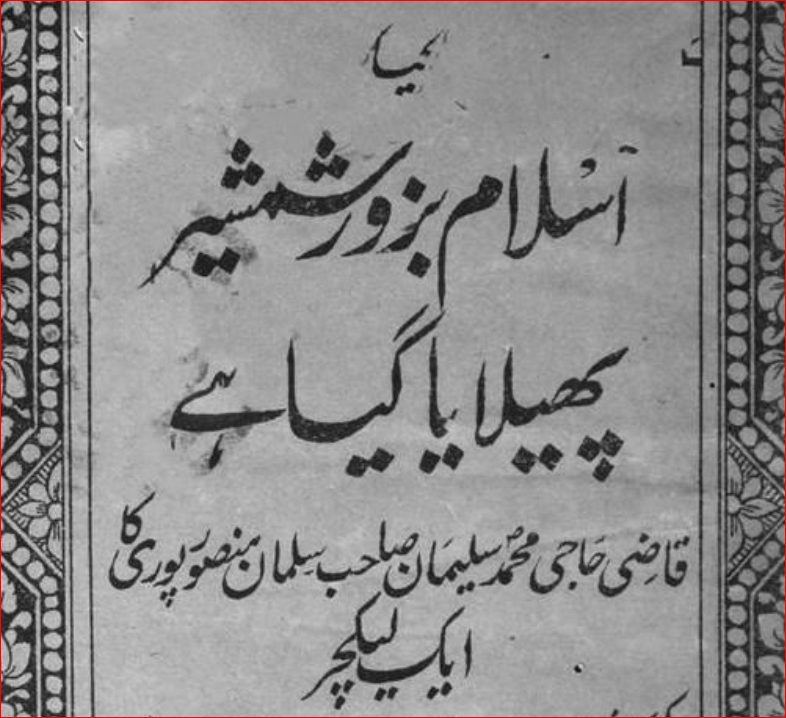 کیا
اسلام بزور شمشیر
پھیلایا گیا ہے
قاضی حاجی محمد سلیمان صاحب سلمان منصور پوری کا
ایک لیکچر